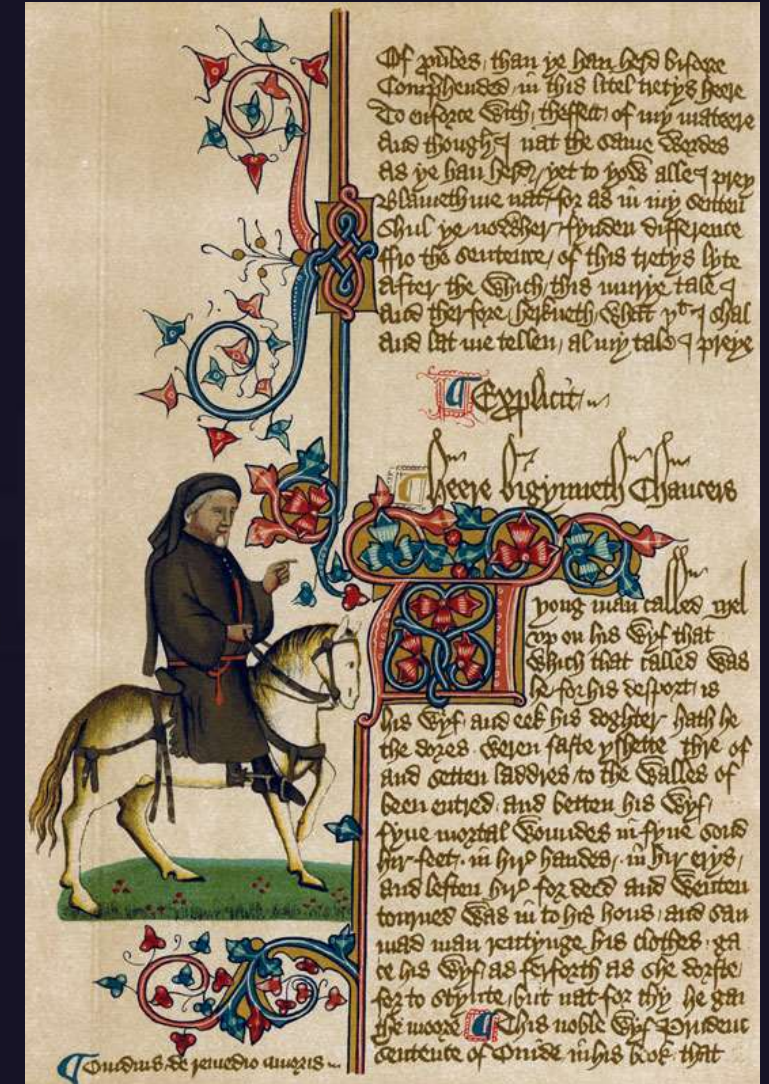 Of prouerbes, than ye han herd bifoore
Comprehended, in this litel tretys heere
To enforce with, theffect, of my mateere
And though I nat the same wordes
As ye han herd, yet to yow alle I prey
Blameth me nat, for as in my senten
Shul ye nowher, fynden difference
ffro the sentence, of this tretys lyte
After the which, this murye tale I
And therfore, herkneth, what yt I shal
And lat me tellen, al my tale I preye
Explicit
Heere bigynneth Chaucers
yong man called Mel
vp on his wyf that
which that called was
he for his desport, is
his wyf, and eek his doghter hath he
the dores weren faste yshette thre of
and setten laddres, to the walles of
been entred, and betten his wyf,
fyue mortal woundes in fyue sond
hir feet, in hir handes, in hir erys,
and leften hir for deed and wenten
torned was in to his hous, and sau
mad man rentynge his clothes, ga
te his wyf, as ferforth as she dorste,
for to stynte, but nat for thy he gan
the moore This noble wyf Prudenc
sentence of Ouide, in his book that
Ouidius de remedio amoris